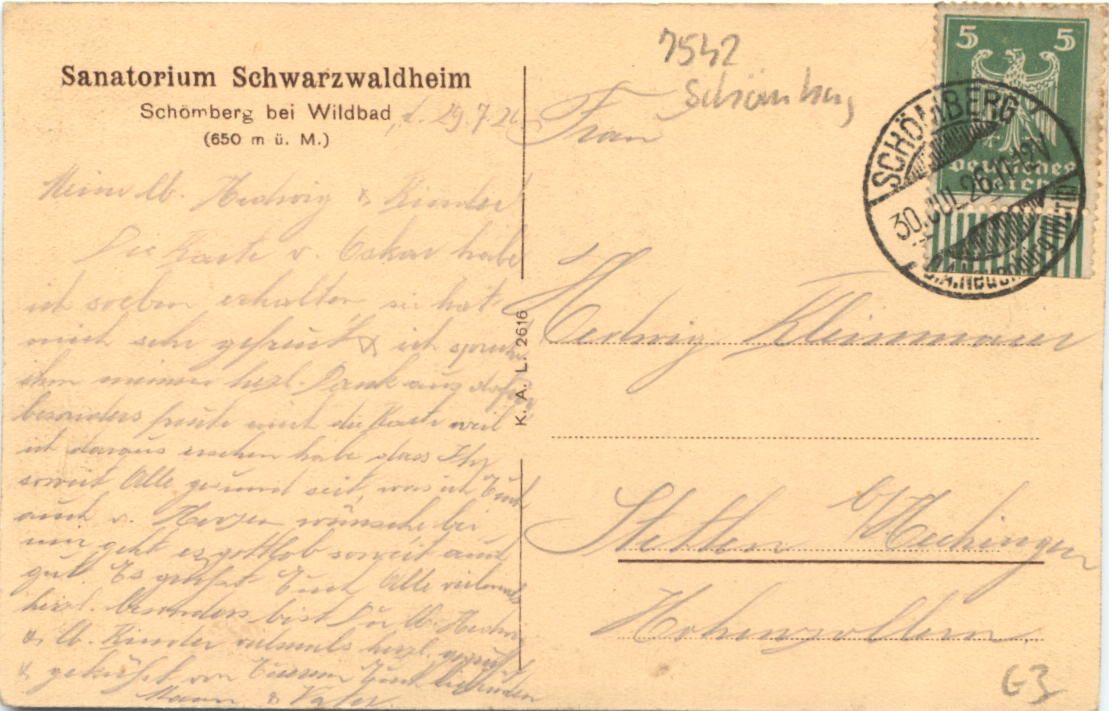 Sanatorium Schwarzwaldheim
Schömberg bei Wildbad
(650 m ü. M.)
d. 29.7.26
Meine lb. Hedwig & Kinder!
Die Karte v. Oskar habe
ich soeben erhalten, sie hat
mich sehr gefreut & ich spreche
ihm meinen herzl. Dank aus dafür
besonders freute mich die Karte weil
ich daraus ersehen habe dass Ihr
soweit Alle gesund seit, was ich Euch
auch v. Herzen wünsche bei
mir geht es gottlob soweit auch
gut. Es grüsst Euch Alle vielmals
herzl. besonders bist Du lb. Hedwig
& lb. Kinder vielmals herzl. gegrüsst
& geküsst von Eurem Euch liebenden
Mann & Vater.
K. A. L. 2616
7542
Schömberg
Frau
Hedwig Kleinmaier
Stetten b/Hechingen
Hohenzollern
G3
5 5
Deutsches
Reich
SCHÖMBERG
30.JUL.26.11-12V
O.A.Neuenbürg (Württ)